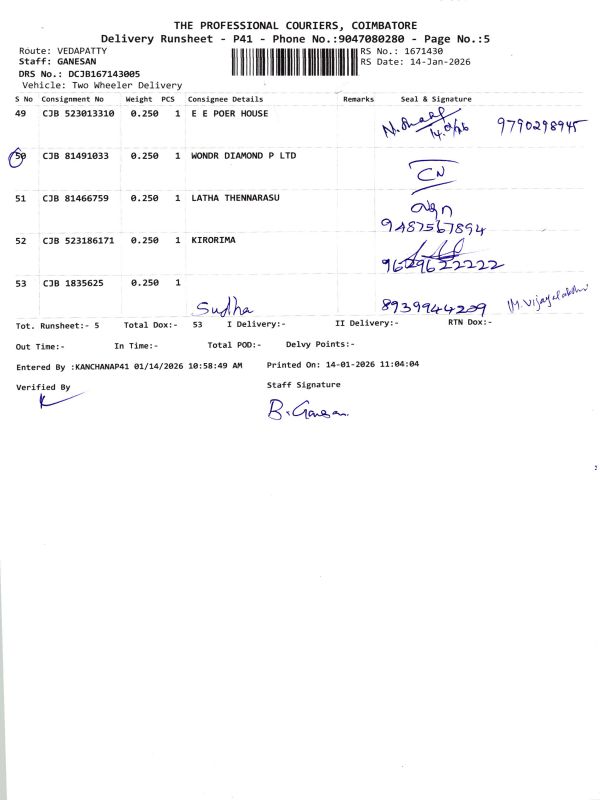 THE PROFESSIONAL COURIERS, COIMBATORE
Delivery Runsheet - P41 - Phone No.:9047080280 - Page No.:5
Route: VEDAPATTY
RS No.: 1671430
Staff: GANESAN
RS Date: 14-Jan-2026
DRS No.: DCJB167143005
Vehicle: Two Wheeler Delivery
S No Consignment No Weight PCS Consignee Details Remarks Seal & Signature
49 CJB 523013310 0.250 1 E E POER HOUSE 9790298945
50 CJB 81491033 0.250 1 WONDR DIAMOND P LTD CN
51 CJB 81466759 0.250 1 LATHA THENNARASU
9487567894
52 CJB 523186171 0.250 1 KIRORIMA
9629622222
53 CJB 1835625 0.250 1
Sudha 8939944209 M.Vijayalakshmi
Tot. Runsheet:- 5 Total Dox:- 53 I Delivery:- II Delivery:- RTN Dox:-
Out Time:- In Time:- Total POD:- Delvy Points:-
Entered By :KANCHANAP41 01/14/2026 10:58:49 AM Printed On: 14-01-2026 11:04:04
Verified By Staff Signature
B. Ganesan.